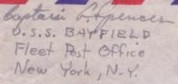 Captain L. Spencer
U.S.S. BAYFIELD
Fleet Post Office
New York, N.Y.